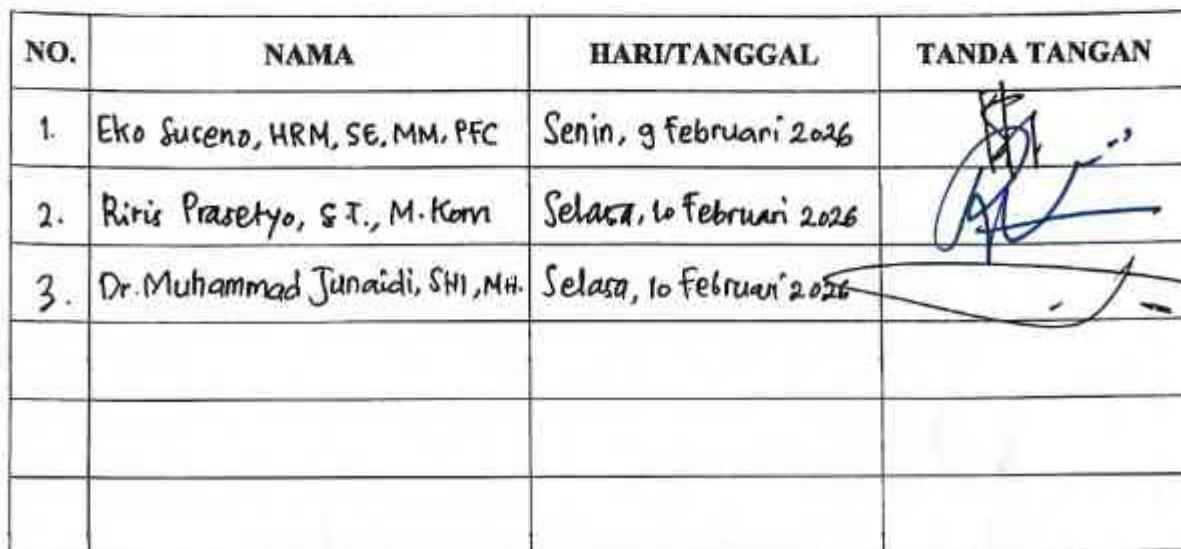 NO. NAMA HARI/TANGGAL TANDA TANGAN
1. Eko Suceno, HRM, SE, MM, PFC Senin, 9 Februari 2026
2. Riris Prasetyo, S.T., M.Kom Selasa, 10 Februari 2026
3. Dr. Muhammad Junaidi, SHI, MH. Selasa, 10 Februari 2026